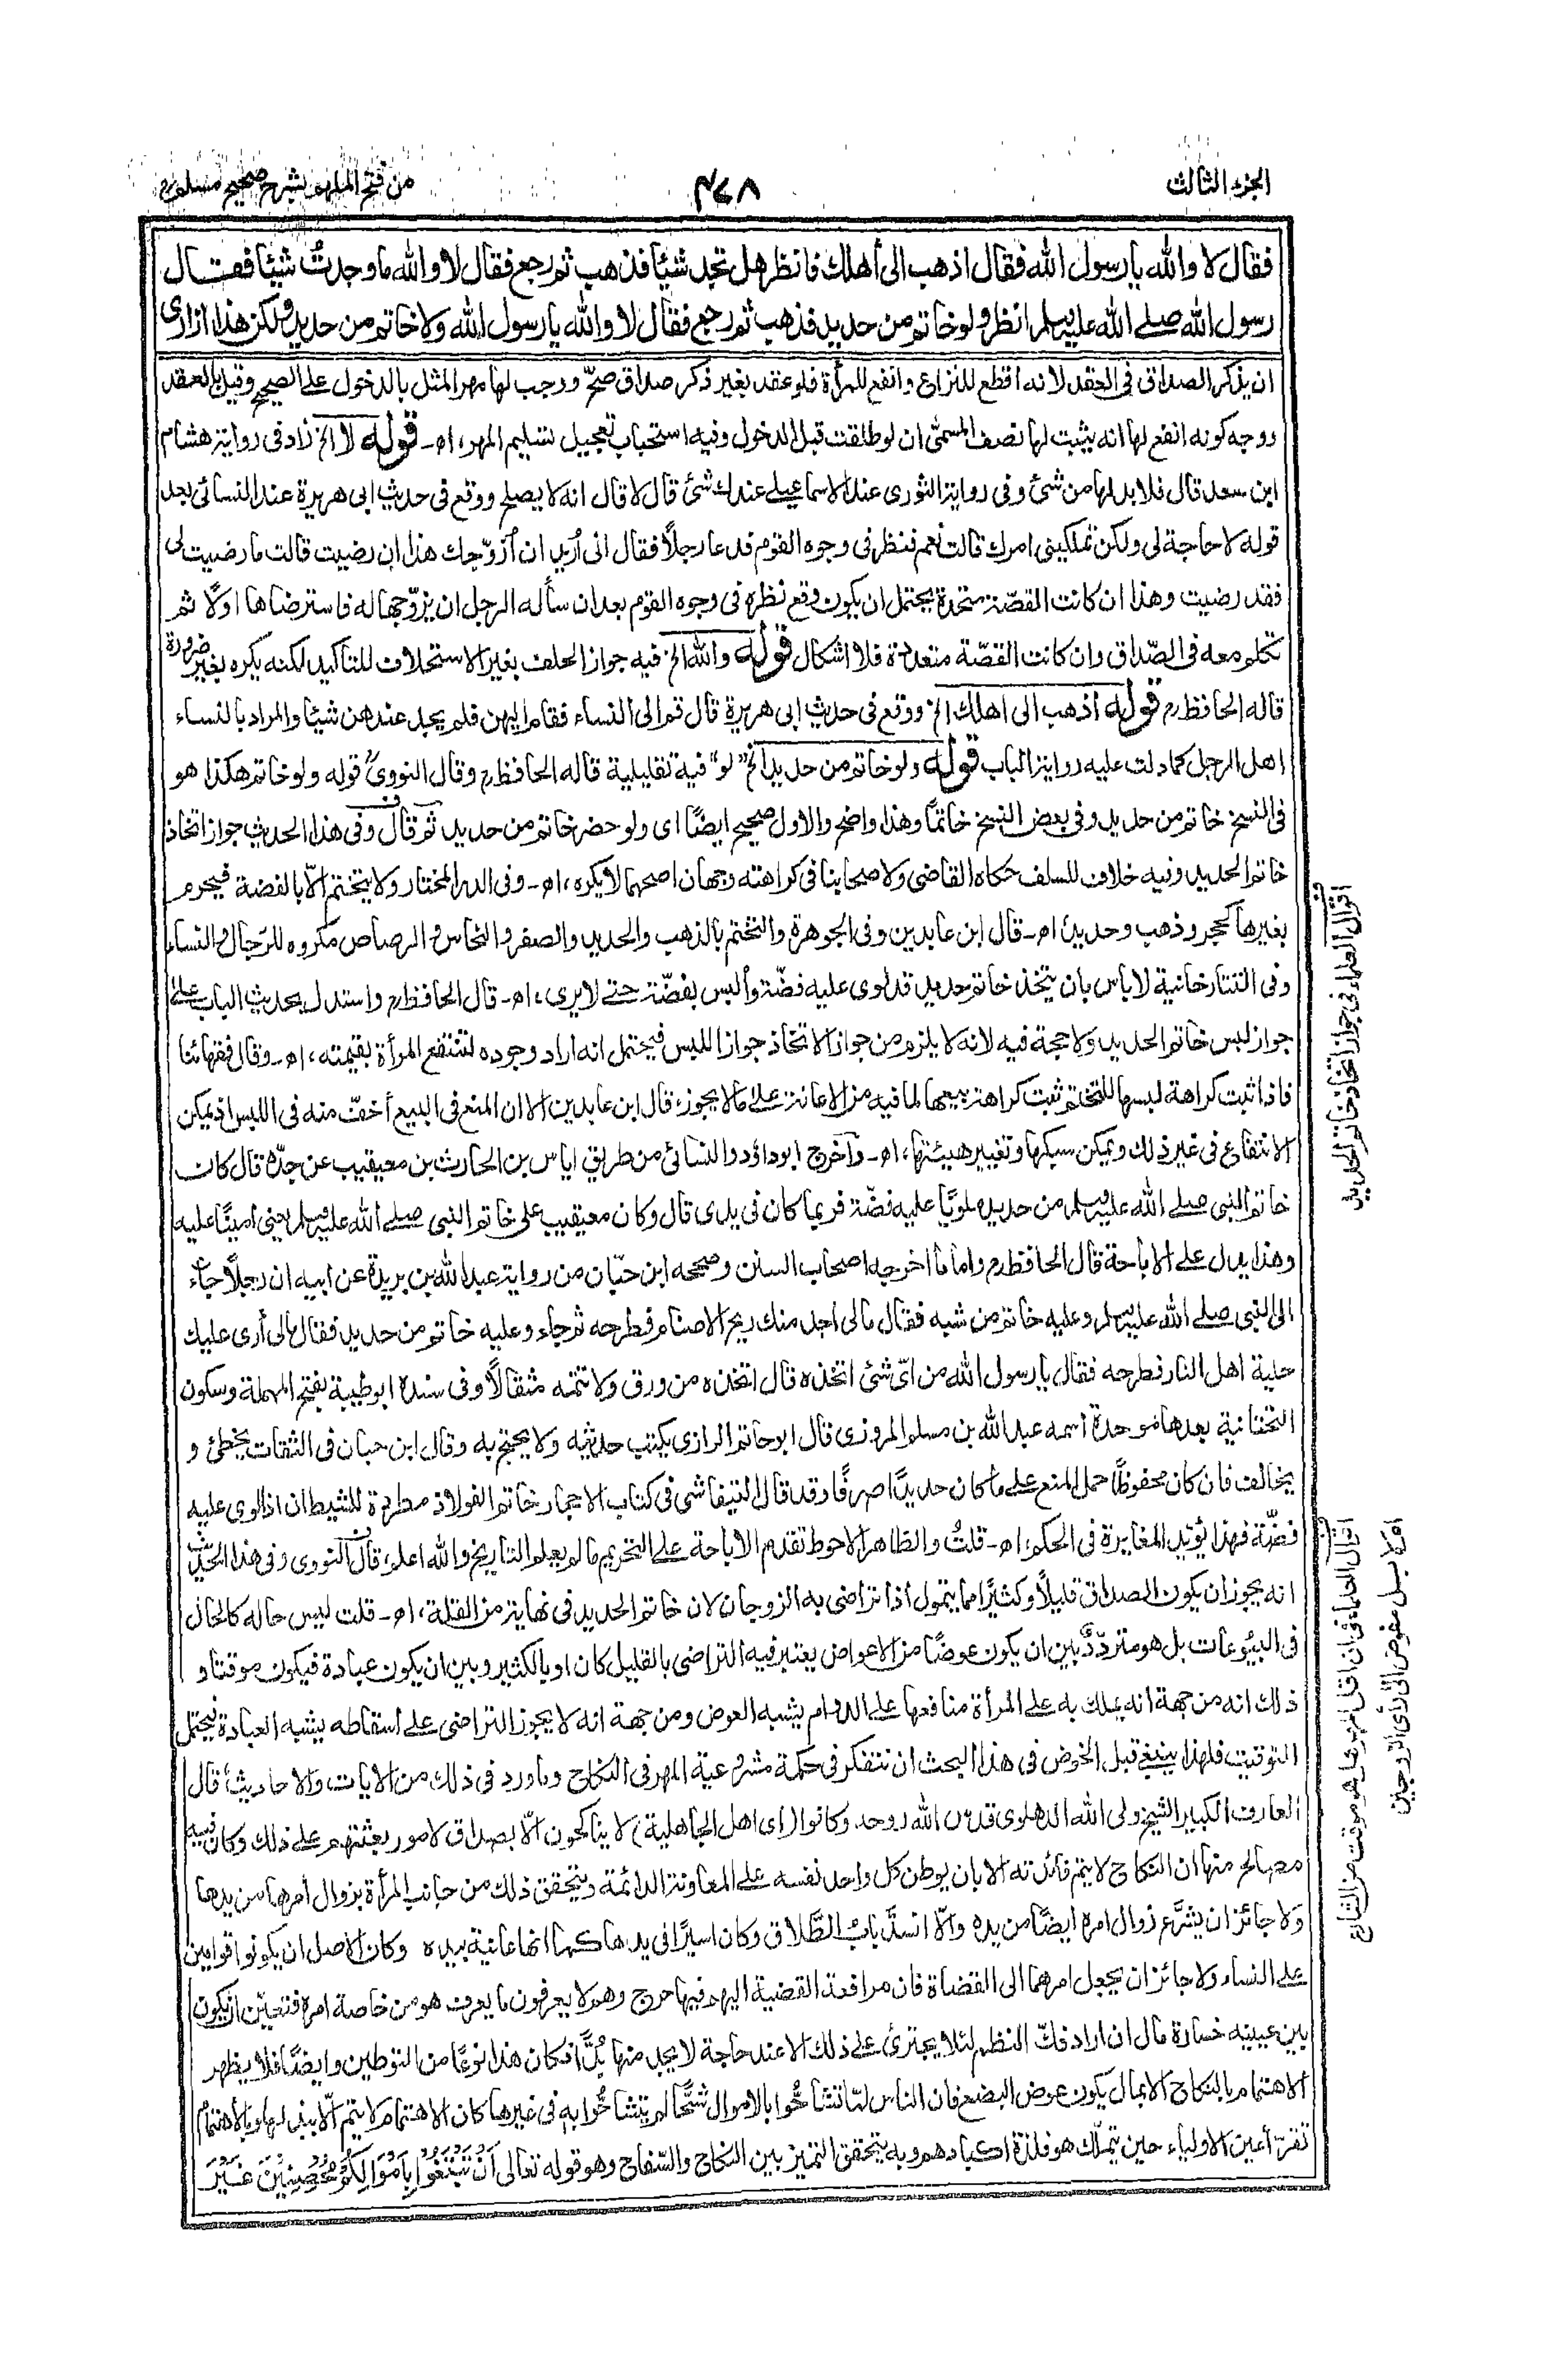 الجزء الثالث
٤٧٨
من فتح الملهم بشرح صحيح مسلم
فقال لا والله يا رسول الله فقال اذهب الى أهلك فانظر هل تجد شيئا فذهب ثم رجع فقال لا والله ما وجدتُ شيئا فقال
رسول الله صلى الله عليه وسلم انظر ولو خاتم من حديد فذهب ثم رجع فقال لا والله يا رسول الله ولا خاتم من حديد ولكن هذا ازارى
ان يذكر الصداق فى العقد لانه اقطع للنزاع وانفع للمرأة فلو عقد بغير ذكر صداق صحّ ووجب لها مهر المثل بالدخول على الصحيح وقيل بالعقد
ووجه كونه انفع لها انه يثبت لها نصف المسمّى ان لو طلقت قبل الدخول وفيه استحباب تعجيل تسليم المهر، اه۔ قوله لا الخ زاد فى رواية هشام
ابن سعد قال فلابد لها من شئ وفى رواية الثورى عند الاسماعيلى عندك شئ قال لا قال انه لا يصلح ووقع فى حديث ابى هريرة عند النسائى بعد
قوله لا حاجة لى ولكن تملكينى امرك قالت نعم فنظر فى وجوه القوم فدعا رجلاً فقال انى أُريد ان أُزوّجك هذا ان رضيت قالت ما رضيت لى
فقد رضيت وهذا ان كانت القصّة متحدة يحتمل ان يكون وقع نظره فى وجوه القوم بعد ان سأله الرجل ان يزوّجها له فاسترضاها اولًا ثم
تكلم معه فى الصّداق وان كانت القصّة متعددة فلا اشكال قوله والله الخ فيه جواز الحلف بغير الاستحلاف للتأكيد لكنه يكره بغير ضرورة
قاله الحافظ رح قوله اذهب الى اهلك الخ ووقع فى حديث ابى هريرة قال قم الى النساء فقام اليهن فلم يجد عندهن شيئا والمراد بالنساء
اهل الرجل كما دلت عليه رواية الباب قوله ولو خاتم من حديد الخ "لو" فيه تقليلية قاله الحافظ رح وقال النووىؒ قوله ولو خاتم هكذا هو
فى النسخ خاتم من حديد وفى بعض النسخ خاتمًا وهذا واضح والاول صحيح ايضًا اى ولو حضر خاتم من حديد ثم قال وفى هذا الحديث جواز اتخاذ
خاتم الحديد وفيه خلاف للسلف حكاه القاضى ولاصحابنا فى كراهته وجهان اصحهما لا يكره، اه۔ وفى الدر المختار ولا يتختم الّا بالفضة فيحرم
بغيرها كحجر وذهب وحديد، اه۔ قال ابن عابدين وفى الجوهرة والتختم بالذهب والحديد والصفر والنحاس والرصاص مكروه للرجال والنساء
وفى التتارخانية لا باس بان يتخذ خاتم حديد قد لوى عليه فضّة وألبس بفضّة حتى لا يرى، اه۔ قال الحافظ رح واستدل بحديث الباب على
جواز لبس خاتم الحديد ولا حجة فيه لانه لا يلزم من جواز الاتخاذ جواز اللبس فيحتمل انه اراد وجوده لتنتفع المرأة بقيمته، اه۔ وقال فقهائنا
فاذا ثبت كراهة لبسها للتختم ثبت كراهة بيعها لما فيه من الاعانة على ما لا يجوز، قال ابن عابدين الا ان المنع فى البيع أخفّ منه فى اللبس اذ يمكن
الانتفاع فى غير ذلك ويمكن سبكها وتغيير هيئتها، اه۔ وآخرج ابوداؤد والنسائى من طريق اياس بن الحارث بن معيقيب عن جدّه قال كان
خاتم النبى صلى الله عليه وسلم من حديد ملويًا عليه فضّة فربما كان فى يدى قال وكان معيقيب على خاتم النبى صلى الله عليه وسلم يعنى امينًا عليه
وهذا يدل على الاباحة قال الحافظ رح واما ما اخرجه اصحاب السنن وصححه ابن حبّان من رواية عبد الله بن بريدة عن ابيه ان رجلًا جاء
الى النبى صلى الله عليه وسلم وعليه خاتم من شبه فقال مالى اجد منك ريح الاصنام فطرحه ثم جاء وعليه خاتم من حديد فقال مالى أرى عليك
حلية اهل النار فطرحه فقال يا رسول الله من اىّ شئ اتخذه قال اتخذه من ورق ولا تتمّه مثقالًا وفى سنده ابو طيبة بفتح المهملة وسكون
التحتانية بعدها موحدة اسمه عبد الله بن مسلم المروزى قال ابو حاتم الرازى يكتب حديثه ولا يحتج به وقال ابن حبان فى الثقات يخطئ و
يخالف فان كان محفوظًا حمل المنع على ما كان حديدًا صرفًا وقد قال التيفاشى فى كتاب الاحجار خاتم الفولاذ مطردة للشيطان اذا لوى عليه
فضّة فهذا يؤيد المغايرة فى الحكم، اه۔ قلتُ والظاهر الاحوط تقدم الاباحة على التحريم ما لم يعلم التاريخ والله اعلم، قال النووى وفى هذا الحديث
انه يجوز ان يكون الصداق قليلًا وكثيرًا مما يتمول اذا تراضى به الزوجان لان خاتم الحديد فى نهاية من القلة، اه۔ قلت ليس حاله كالحال
فى البيُوعات بل هو متردّدٌ بين ان يكون عوضًا من الاعواض يعتبر فيه التراضى بالقليل كان او بالكثير وبين ان يكون عبادة فيكون موقتا و
ذلك انه من جهة انه يملك به على المرأة منافعها على الدوام يشبه العوض ومن جهة انه لا يجوز التراضى على اسقاطه يشبه العبادة فيحتمل
التوقيت فلهذا ينبغى قبل الخوض فى هذا البحث ان نتفكر فى حكمة مشروعية المهر فى النكاح وما ورد فى ذلك من الايات والاحاديث، قال
العارف الكبير الشيخ ولى الله الدهلوى قدس الله روحه وكانوا (اى اهل الجاهلية) لا يناكحون الّا بصداق لامور بعثتهم على ذلك وكان فيه
مصالح منها ان النكاح لا يتم فائدته الا بان يوطن كل واحد نفسه على المعاونة الدائمة ويتحقق ذلك من جانب المرأة بزوال أمرها من يدها
ولا جائز ان يشرّع زوال امره ايضًا من يده والّا انسدّ بابُ الطّلاق وكان اسيرًا فى يدها كما انها عانية بيده وكان الاصل ان يكونوا قوامين
على النساء ولا جائز ان يجعل امرهما الى القضاة فان مرافعة القضية اليهم فيها حرج وهم لا يعرفون ما يعرف هو من خاصة امره فتعيّن ان يكون
بين عينيه خسارة مال ان اراد فكّ النظم لئلا يجترئ على ذلك الا عند حاجة لا يجد منها بُدًّا فكان هذا نوعًا من التوطين وايضًا فلا يظهر
الاهتمام بالنكاح الا بمال يكون عوض البضع فان الناس لمّا تشاحّوا بالاموال شُحًّا لم يتشاحّوا به فى غيرها كان الاهتمام لا يتم الّا ببذلها وبالاهتمام
تقرّ أعين الاولياء حين يتملّك هو فلذة اكبادهم وبه يتحقق التميز بين النكاح والسّفاح وهو قوله تعالى اَنْ تَبْتَغُوْا بِاَمْوَالِكُمْ مُّحْصِنِيْنَ غَيْرَ
اقوال العلماء فى جواز اتخاذ خاتم الحديد
اقوال العلماء فى ان اقل المهر هل هو موقت من الشارع
ام لا بل مفوض الى رأى الزوجين